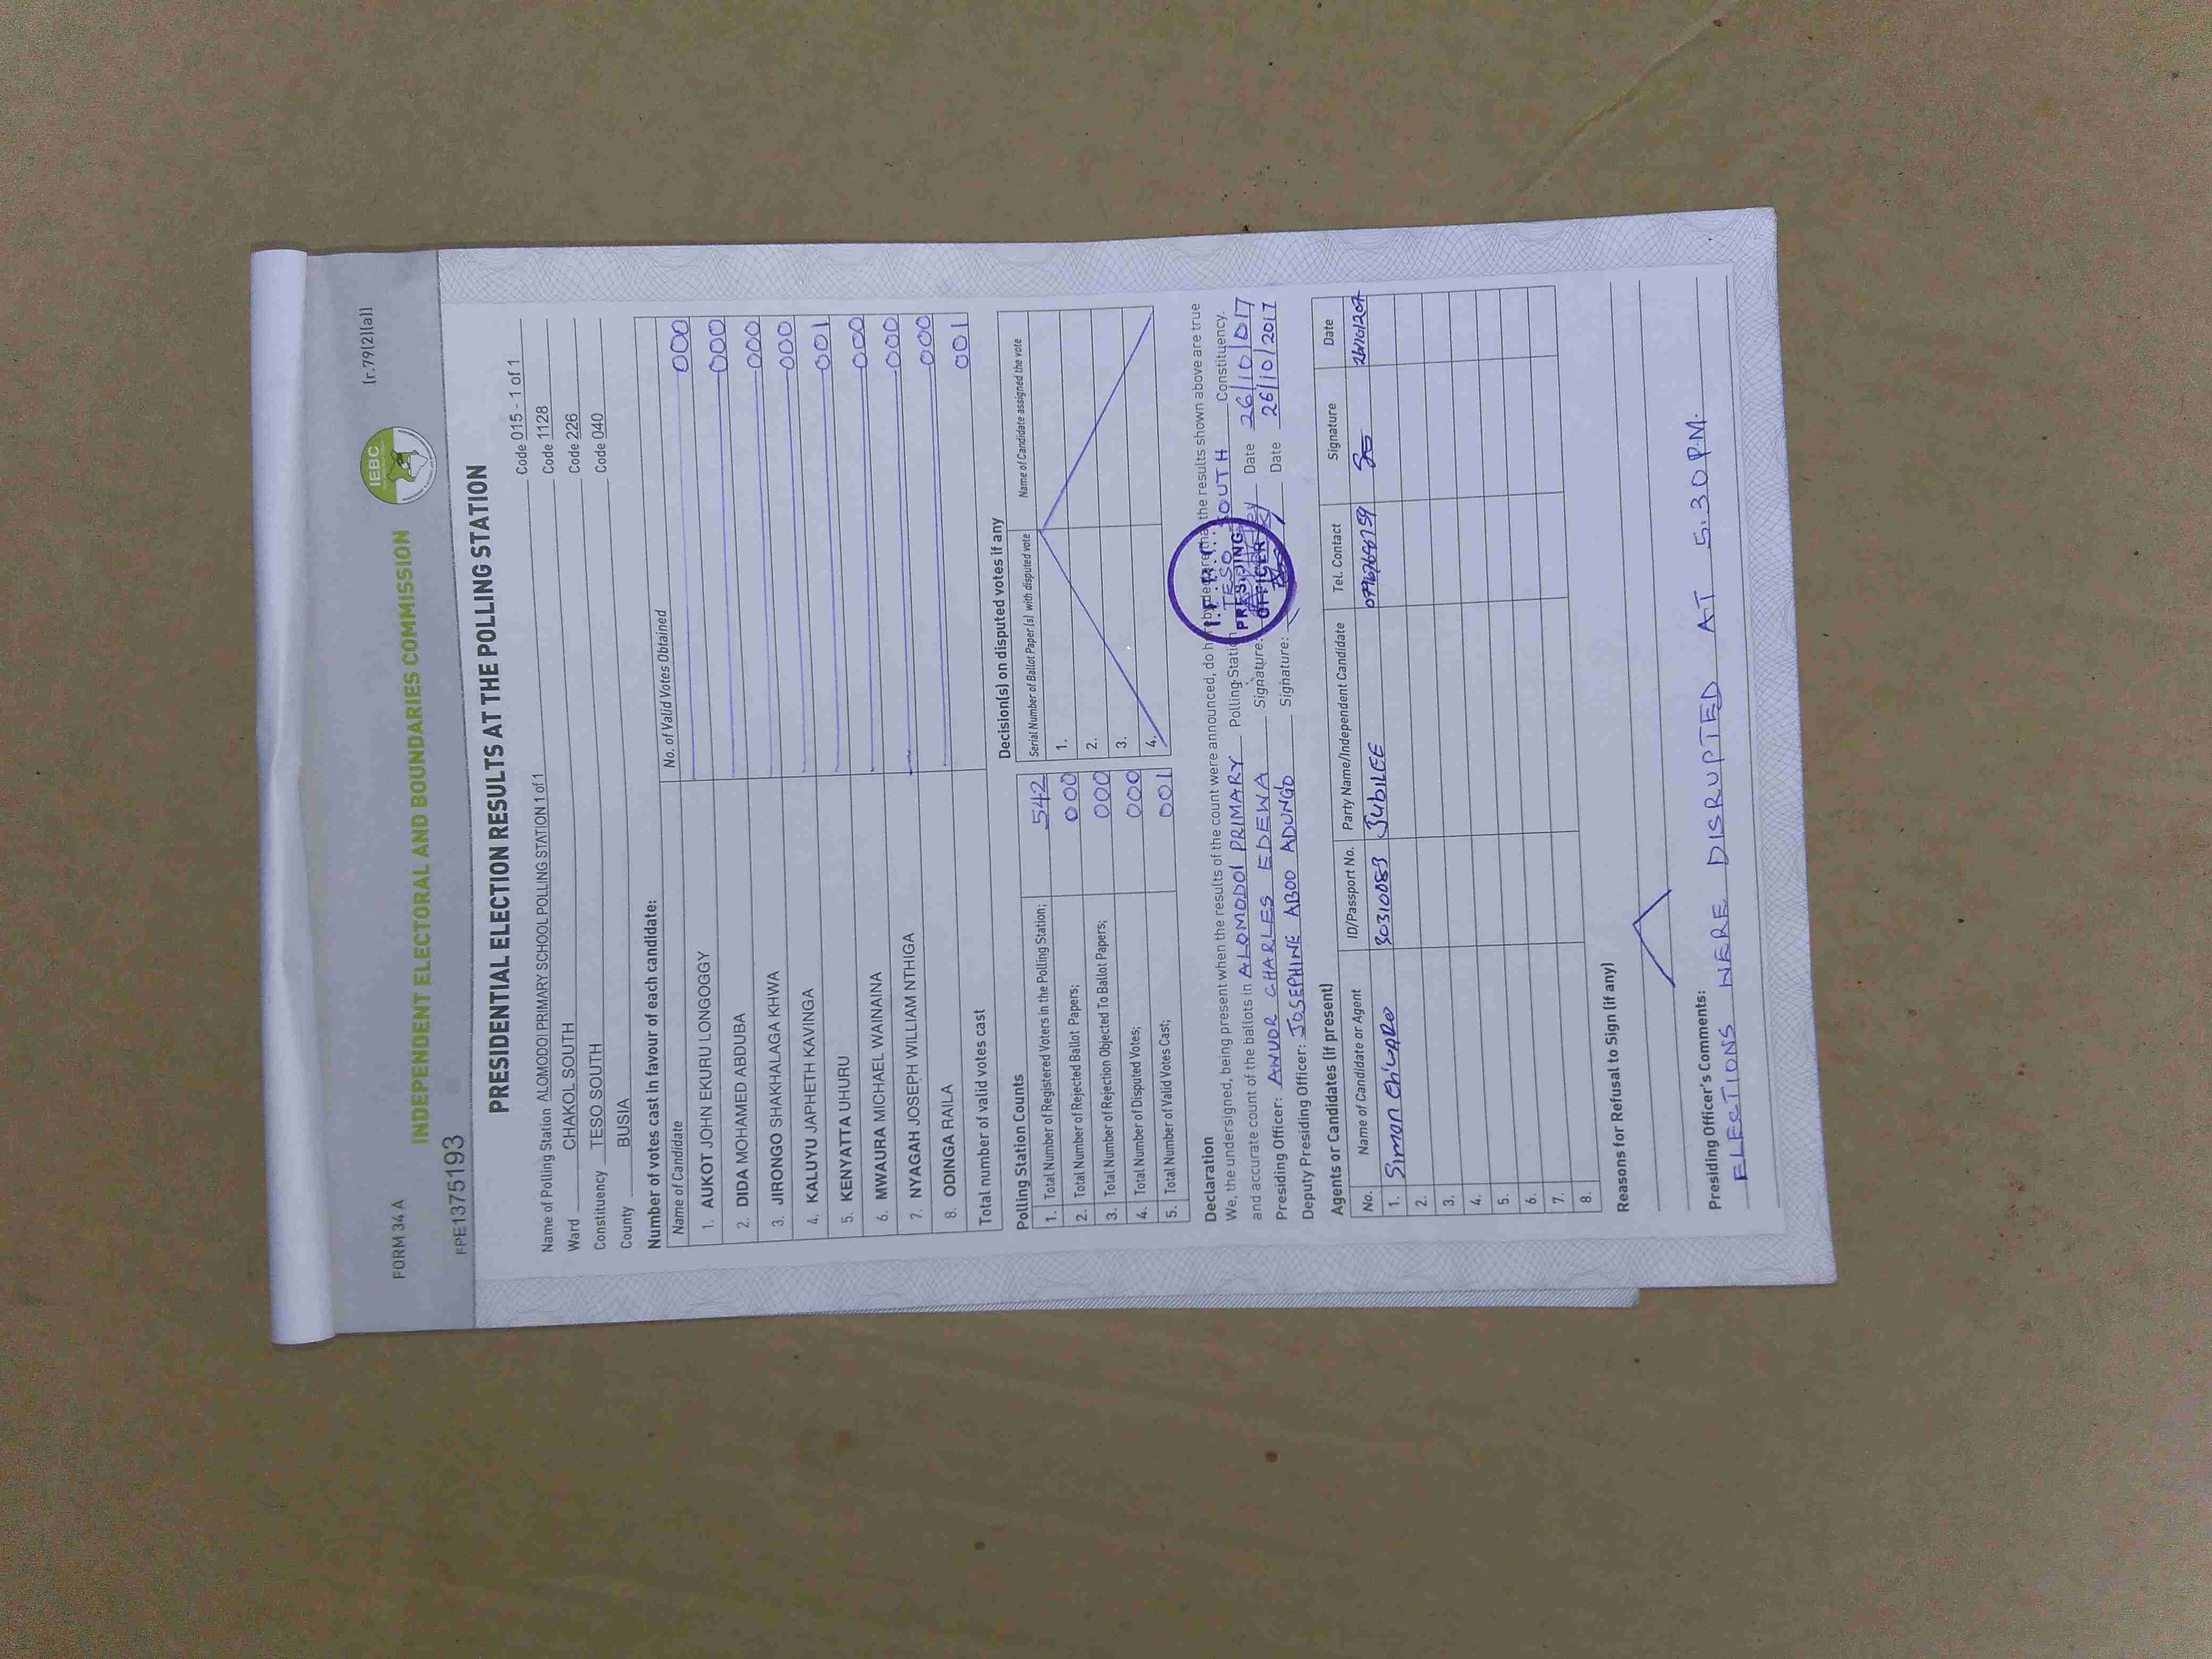 FORM 34 A
[r.79(2)(a)]
IEBC
INDEPENDENT ELECTORAL AND BOUNDARIES COMMISSION
PRE1375193
PRESIDENTIAL ELECTION RESULTS AT THE POLLING STATION
Name of Polling Station ALOMODOI PRIMARY SCHOOL POLLING STATION 1 of 1 Code 015 - 1 of 1
Ward CHAKOL SOUTH Code 1128
Constituency TESO SOUTH Code 226
County BUSIA Code 040
Number of votes cast in favour of each candidate:
Name of Candidate No. of Valid Votes Obtained
1. AUKOT JOHN EKURU LONGOGGY 000
2. DIDA MOHAMED ABDUBA 000
3. JIRONGO SHAKHALAGA KHWA 000
4. KALUYU JAPHETH KAVINGA 000
5. KENYATTA UHURU 001
6. MWAURA MICHAEL WAINAINA 000
7. NYAGAH JOSEPH WILLIAM NTHIGA 000
8. ODINGA RAILA 000
Total number of valid votes cast 001
Polling Station Counts
1. Total Number of Registered Voters in the Polling Station; 542
2. Total Number of Rejected Ballot Papers; 000
3. Total Number of Rejection Objected To Ballot Papers; 000
4. Total Number of Disputed Votes; 000
5. Total Number of Valid Votes Cast; 001
Decision(s) on disputed votes if any
Serial Number of Ballot Paper (s) with disputed vote Name of Candidate assigned the vote
1.
2.
3.
4.
Declaration
We, the undersigned, being present when the results of the count were announced, do the results shown above are true
and accurate count of the ballots in ALOMODOI PRIMARY Polling Station TESO SOUTH Constituency.
Presiding Officer: AWUOR CHARLES EDEWA Signature: Date 26/10/017
Deputy Presiding Officer: JOSEPHINE ABOO ADUNGO Signature: Date 26/10/2017
PRESIDING
OFFICER
Agents or Candidates (if present)
No. Name of Candidate or Agent ID/Passport No. Party Name/Independent Candidate Tel. Contact Signature Date
1. Simon 30310083 JUBILEE
2.
3.
4.
5.
6.
7.
8.
Reasons for Refusal to Sign (if any)
Presiding Officer's Comments:
ELECTIONS WERE DISRUPTED AT 5.30 P.M.